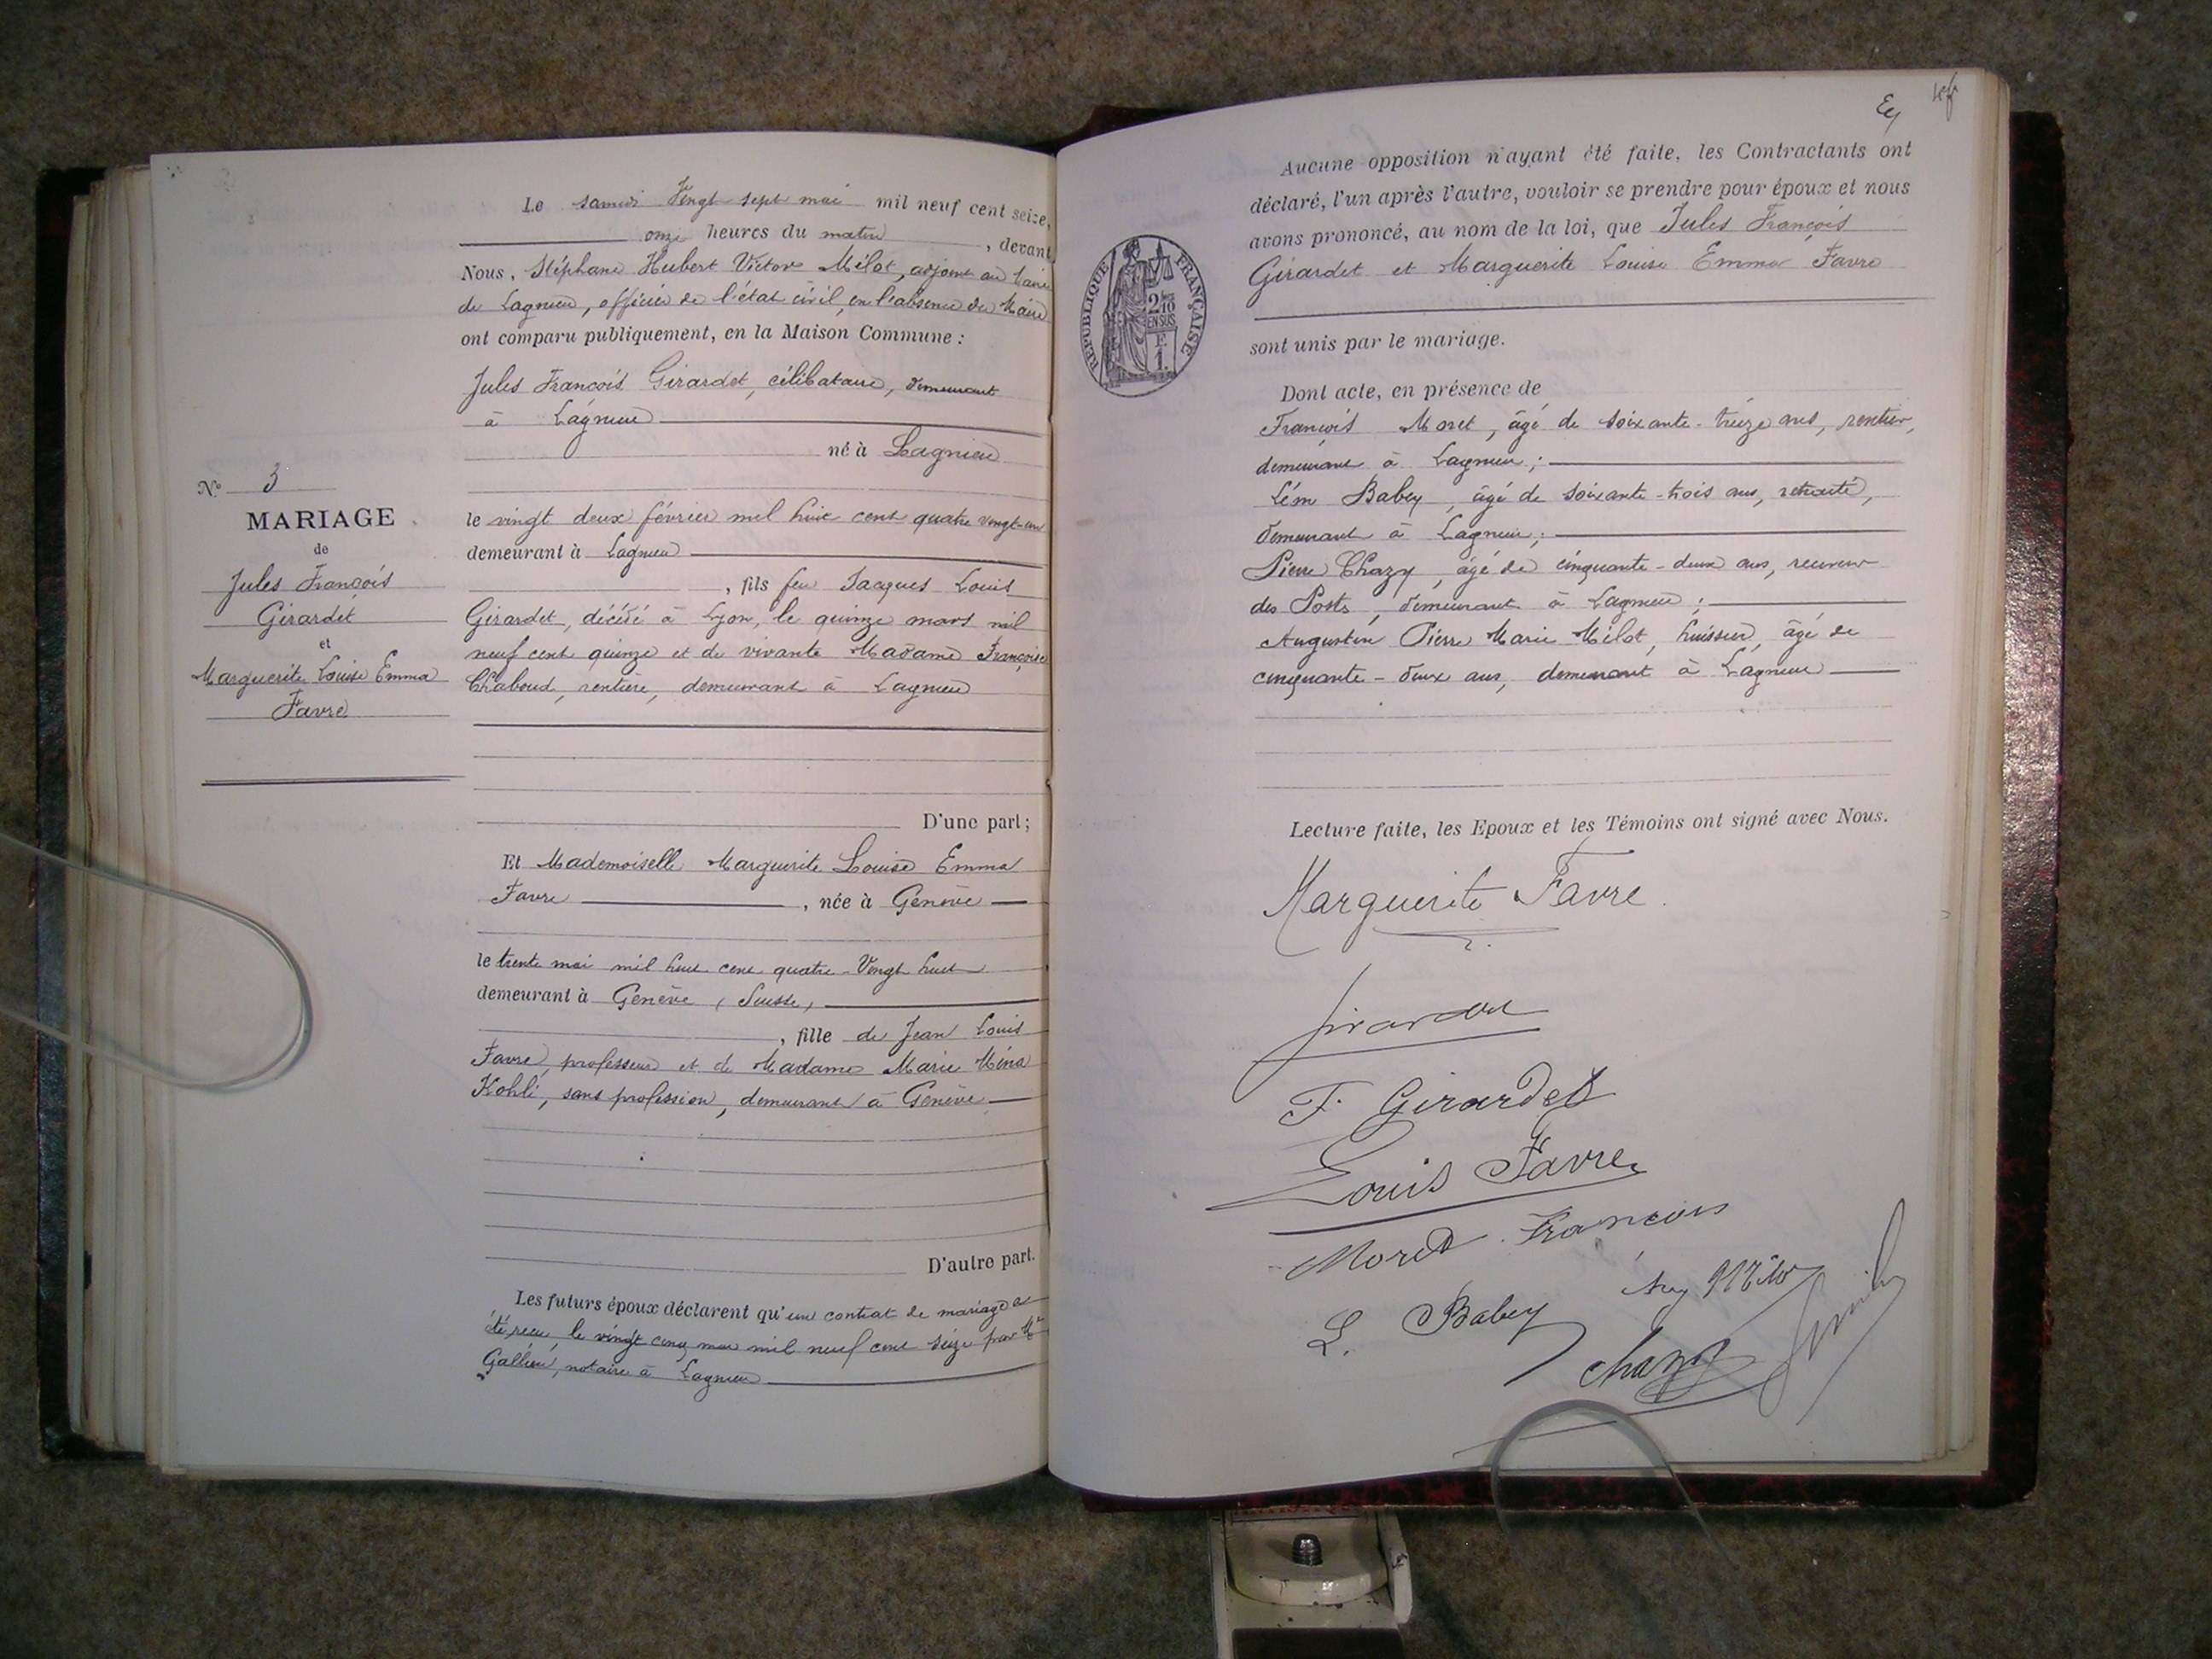 Le samedi Vingt sept mai mil neuf cent seize,
onze heures du matin, devant
Nous, Stéphane Hubert Victor Mélot, adjoint au Maire
de Lagnieu, officier de l'état civil, en l'absence du Maire
ont comparu publiquement, en la Maison Commune :
Jules François Girardet, célibataire, demeurant
à Lagnieu
né à Lagnieu
le vingt deux février mil huit cent quatre vingt-un
demeurant à Lagnieu
, fils feu Jacques Louis
Girardet, décédé à Lyon, le quinze mars mil
neuf cent quinze et de vivante Madame Françoise
Chaboud, rentière, demeurant à Lagnieu
D'une part ;
Et Mademoiselle Marguerite Louise Emma
Favre, née à Genève
le trente mai mil huit cent quatre-Vingt huit
demeurant à Genève, Suisse,
, fille de Jean Louis
Favre, professeur et de Madame Marie Mina
Kohli, sans profession, demeurant à Genève
D'autre part.
Les futurs époux déclarent qu'un contrat de mariage a
été reçu, le vingt cinq mai mil neuf cent seize par Me
Gallien, notaire à Lagnieu
N° 3
MARIAGE
de
Jules François
Girardet
et
Marguerite Louise Emma
Favre
Aucune opposition n'ayant été faite, les Contractants ont
déclaré, l'un après l'autre, vouloir se prendre pour époux et nous
avons prononcé, au nom de la loi, que Jules François
Girardet et Marguerite Louise Emma Favre
sont unis par le mariage.
Dont acte, en présence de
François Moret, âgé de soixante-treize ans, rentier,
demeurant à Lagnieu ;
Léon Babey, âgé de soixante-trois ans, retraité,
demeurant à Lagnieu ;
Pierre Chazy, âgé de cinquante-deux ans, receveur
des Postes, demeurant à Lagnieu ;
Augustin Pierre Marie Mélot, huissier, âgé de
cinquante-deux ans, demeurant à Lagnieu
RÉPUBLIQUE FRANÇAISE
2/10
EN SUS
F.
1.
Lecture faite, les Epoux et les Témoins ont signé avec Nous.
Marguerite Favre.
Girardet
F. Girardet
Louis Favre
Moret François
L. Babey
Chazy